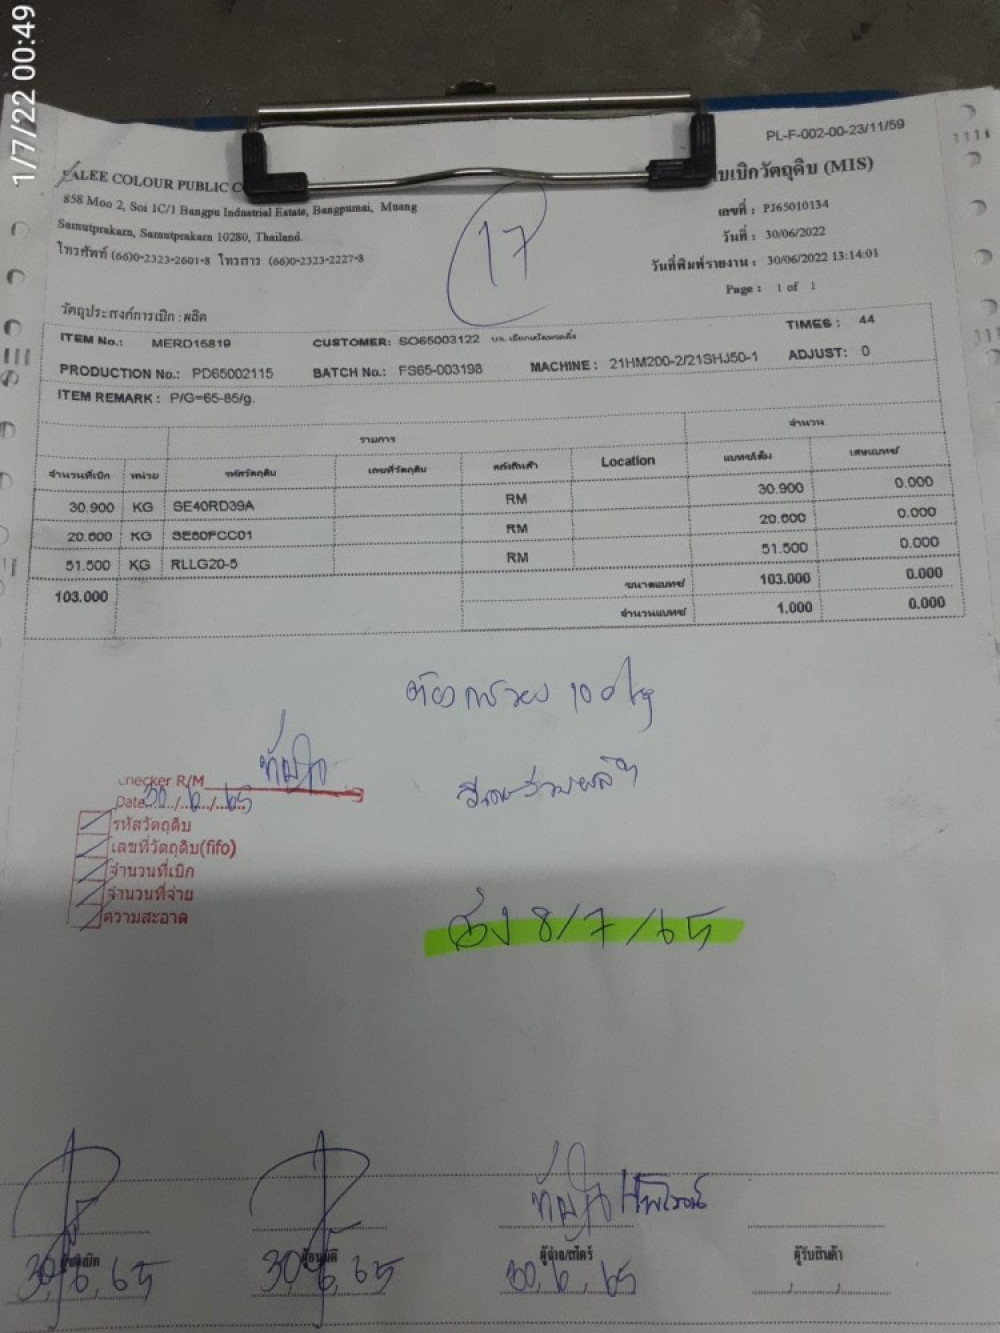 1/7/22 00:49
PL-F-002-00-23/11/59
ALEE COLOUR PUBLIC C
บเบิกวัตถุดิบ (MIS)
858 Moo 2, Soi 1C/1 Bangpu Industrial Estate, Bangpumai, Muang
Samutprakarn, Samutprakarn 10280, Thailand.
โทรศัพท์ (66)0-2323-2601-8 โทรสาร (66)0-2323-2227-8
เลขที่ : PJ65010134
วันที่ : 30/06/2022
วันที่พิมพ์รายงาน : 30/06/2022 13:14:01
Page : 1 of 1
17
วัตถุประสงค์การเบิก : ผลิต
ITEM No.: MERD15819 CUSTOMER: SO65003122 TIMES : 44
PRODUCTION No.: PD65002115 BATCH No.: FS65-003198 MACHINE : 21HM200-2/21SHJ50-1 ADJUST: 0
ITEM REMARK : P/G=65-85/g.
รายการ จำนวน
จำนวนที่เบิก หน่วย รหัสวัตถุดิบ เลขที่วัตถุดิบ คลังสินค้า Location แบทช์เต็ม เศษแบทช์
30.900 KG SE40RD39A RM 30.900 0.000
20.600 KG SE60FCC01 RM 20.600 0.000
51.500 KG RLLG20-5 RM 51.500 0.000
103.000 ขนาดแบทช์ 103.000 0.000
จำนวนแบทช์ 1.000 0.000
ต้องการ 100 kg
Checker R/M
Date 30/6/65
รหัสวัตถุดิบ
เลขที่วัตถุดิบ(fifo)
จำนวนที่เบิก
จำนวนที่จ่าย
ความสะอาด
ส่ง 8/7/65
ผู้เบิก ผู้อนุมัติ ผู้จ่าย/สโตร์ ผู้รับสินค้า
30, 6, 65 30, 6, 65 30, 6, 65